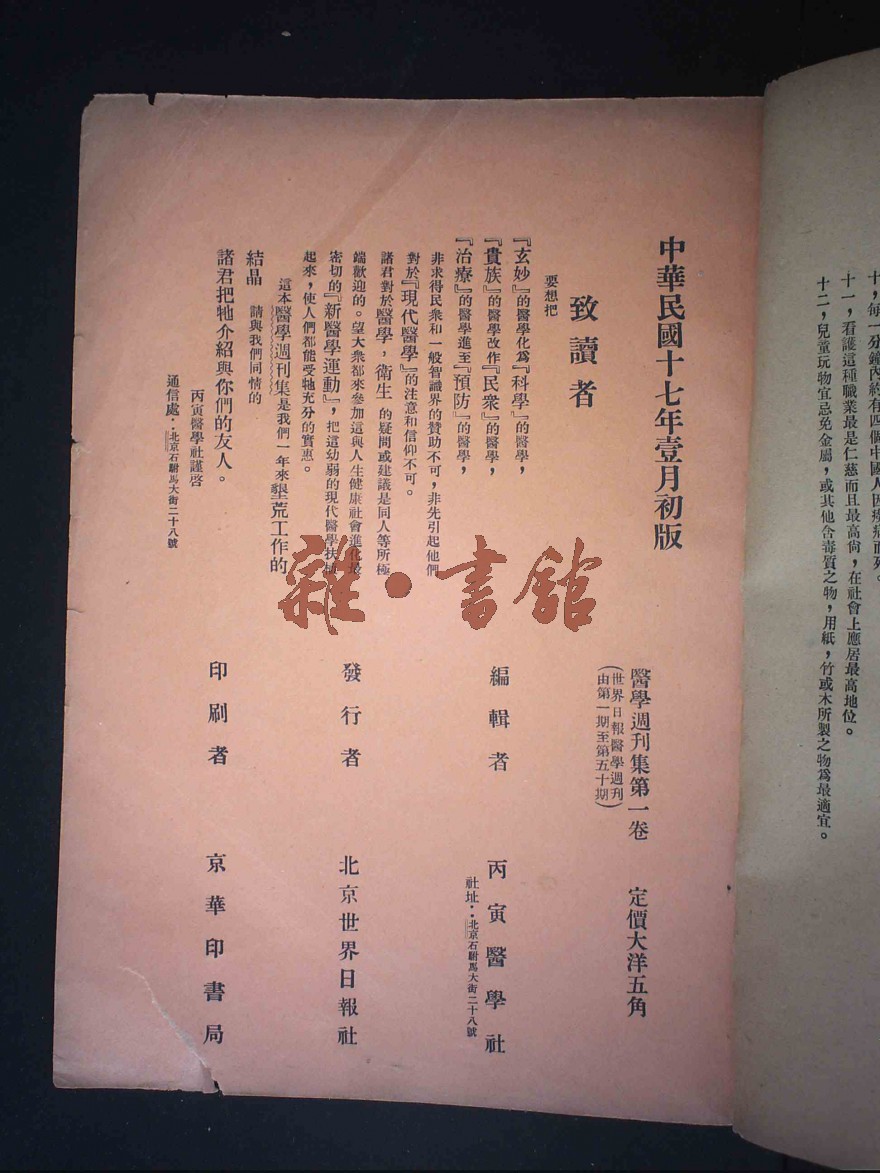 十，每一分鐘內約有四個中國人因癆病而死。
十一，看護這種職業最是仁慈而且最高尙，在社會上應居最高地位。
十二，兒童玩物宜忌免金屬，或其他含毒質之物，用紙，竹或木所製之物爲最適宜。
中華民國十七年壹月初版
致讀者
要想把
『玄妙』的醫學化爲『科學』的醫學，
『貴族』的醫學改作『民衆』的醫學，
『治療』的醫學進至『預防』的醫學，
非求得民衆和一般智識界的贊助不可，非先引起他們
對於『現代醫學』的注意和信仰不可。
諸君對於醫學，衛生的疑問或建議是同人等所極
端歡迎的。望大衆都來參加這與人生健康社會進化最
密切的『新醫學運動』，把這幼弱的現代醫學扶植
起來，使人們都能受牠充分的實惠。
這本醫學週刊集是我們一年來墾荒工作的
結晶　請與我們同情的
諸君把牠介紹與你們的友人。
丙寅醫學社謹啓
通信處：北京石駙馬大街二十八號
醫學週刊集第一卷　定價大洋五角
（世界日報醫學週刊
由第一期至第五十期）
編輯者　丙寅醫學社
社址：北京石駙馬大街二十八號
發行者　北京世界日報社
印刷者　京華印書局
雜·書館